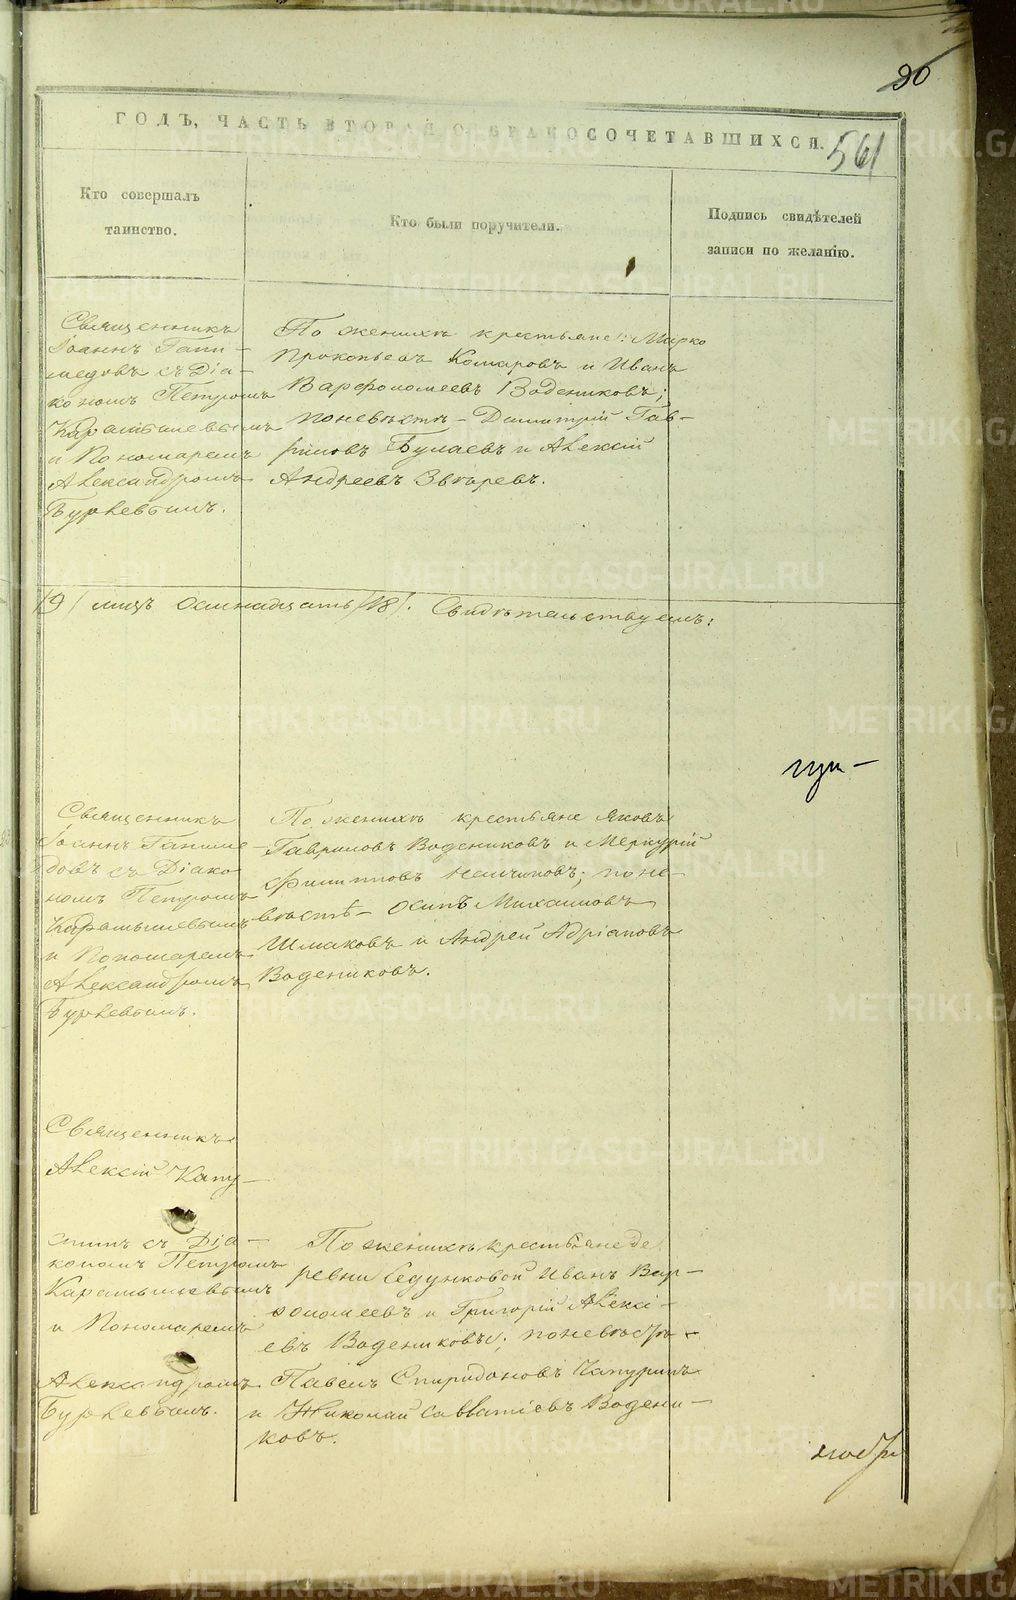 90
ГОДЪ, ЧАСТЬ ВТОРАЯ О БРАКОСОЧЕТАВШИХСЯ.
561
Кто совершалъ
таинство.
Кто были поручители.
Подпись свидѣтелей
записи по желанію.
Священникъ
Іоаннъ Гани-
медовъ съ Діа-
кономъ Петромъ
Карамышевымъ
и Пономаремъ
Александромъ
Бурлевымъ.
По женихѣ крестьяне: Мирко
Прокопьевъ Комаровъ и Иванъ
Варфоломеевъ Водениковъ;
по невѣстѣ – Димитрій Гав-
риловъ Булаевъ и Алексій
Андреевъ Звѣревъ.
/9/ лицъ осмнадцать /18/. Свидѣтельствуемъ:
Священникъ
Іоаннъ Ганиме-
довъ съ Діако-
номъ Петромъ
Карамышевымъ
и Пономаремъ
Александромъ
Бурлевымъ.
По женихѣ крестьяне Яковъ
Гавриловъ Водениковъ и Меркурій
Филипповъ; по не-
вѣстѣ – Осипъ Михаиловъ
Шмаковъ и Андрей Адріановъ
Водениковъ.
Священникъ
Алексій Капу-
стинъ съ Діа-
кономъ Петромъ
Карамышевымъ
и Пономаремъ
Александромъ
Бурлевымъ.
По женихѣ крестьяне де
ревни Седунковой Иванъ Вар-
ѳоломеевъ и Григорій Алексі-
евъ Водениковы; по невѣстѣ –
Павелъ Спиридоновъ Чапуринъ
и Николай Савватіевъ Водени-
ковъ.
METRIKI.GASO-URAL.RU